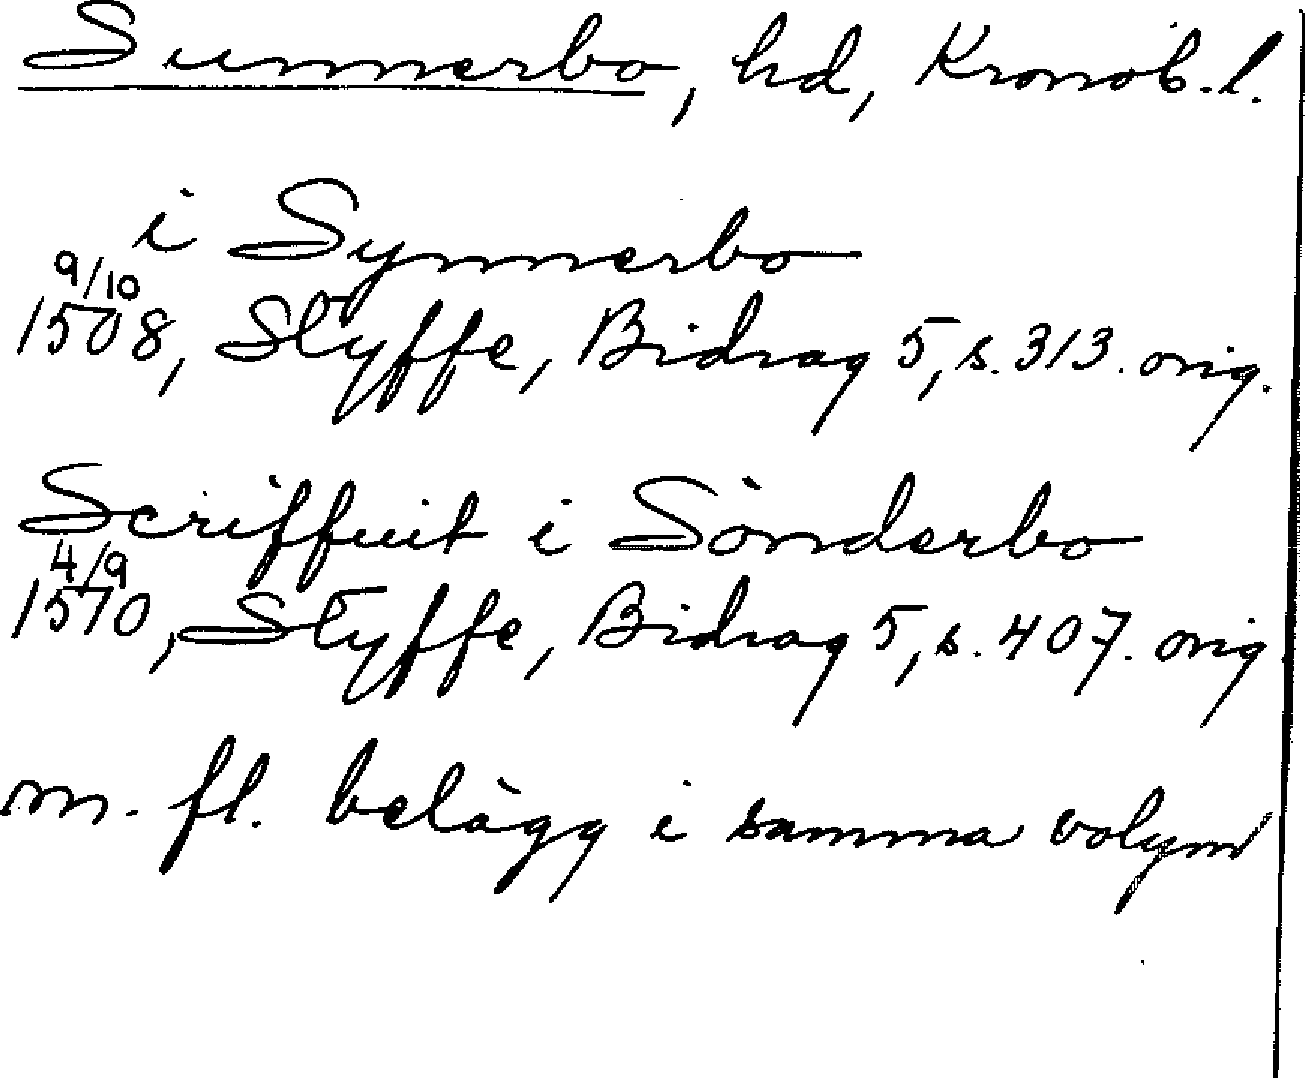 Sunnerbo, hd, Kronob. l.
i Synnerbo
9/10
1508, Styffe, Bidrag 5, s. 313. orig.
Scriffuit i Sönderbo
4/9
1510, Styffe, Bidrag 5, s. 407. orig
m. fl. belägg i samma volym